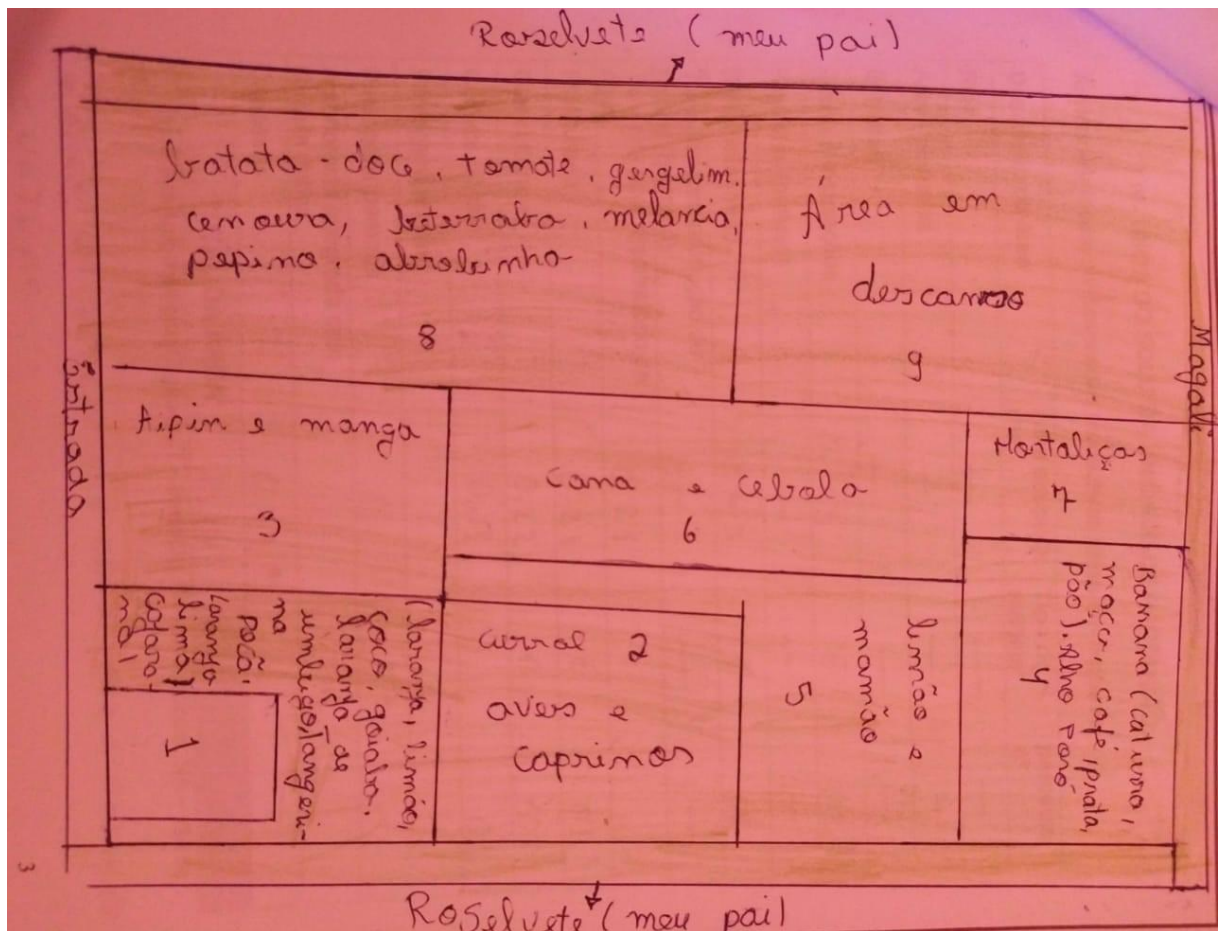 Roselvete (meu pai)
batata-doce, tomate, gergelim,
cenoura, beterraba, melancia,
pepino, abrobinha
8
Área em
descanso
9
Entrada
Magali
Aipin e manga
3
Cana e cebola
6
Hortaliças
7
(laranja, limão,
coco, goiaba,
laranja de
umbugo, tangeri-
na
pocã,
laranja
lima)
1
curral 2
aves e
caprinos
limão e
mamão
5
Banana (caturra,
maçã, café, prata,
pão). Alho Poró
4
3
Roselvete (meu pai)